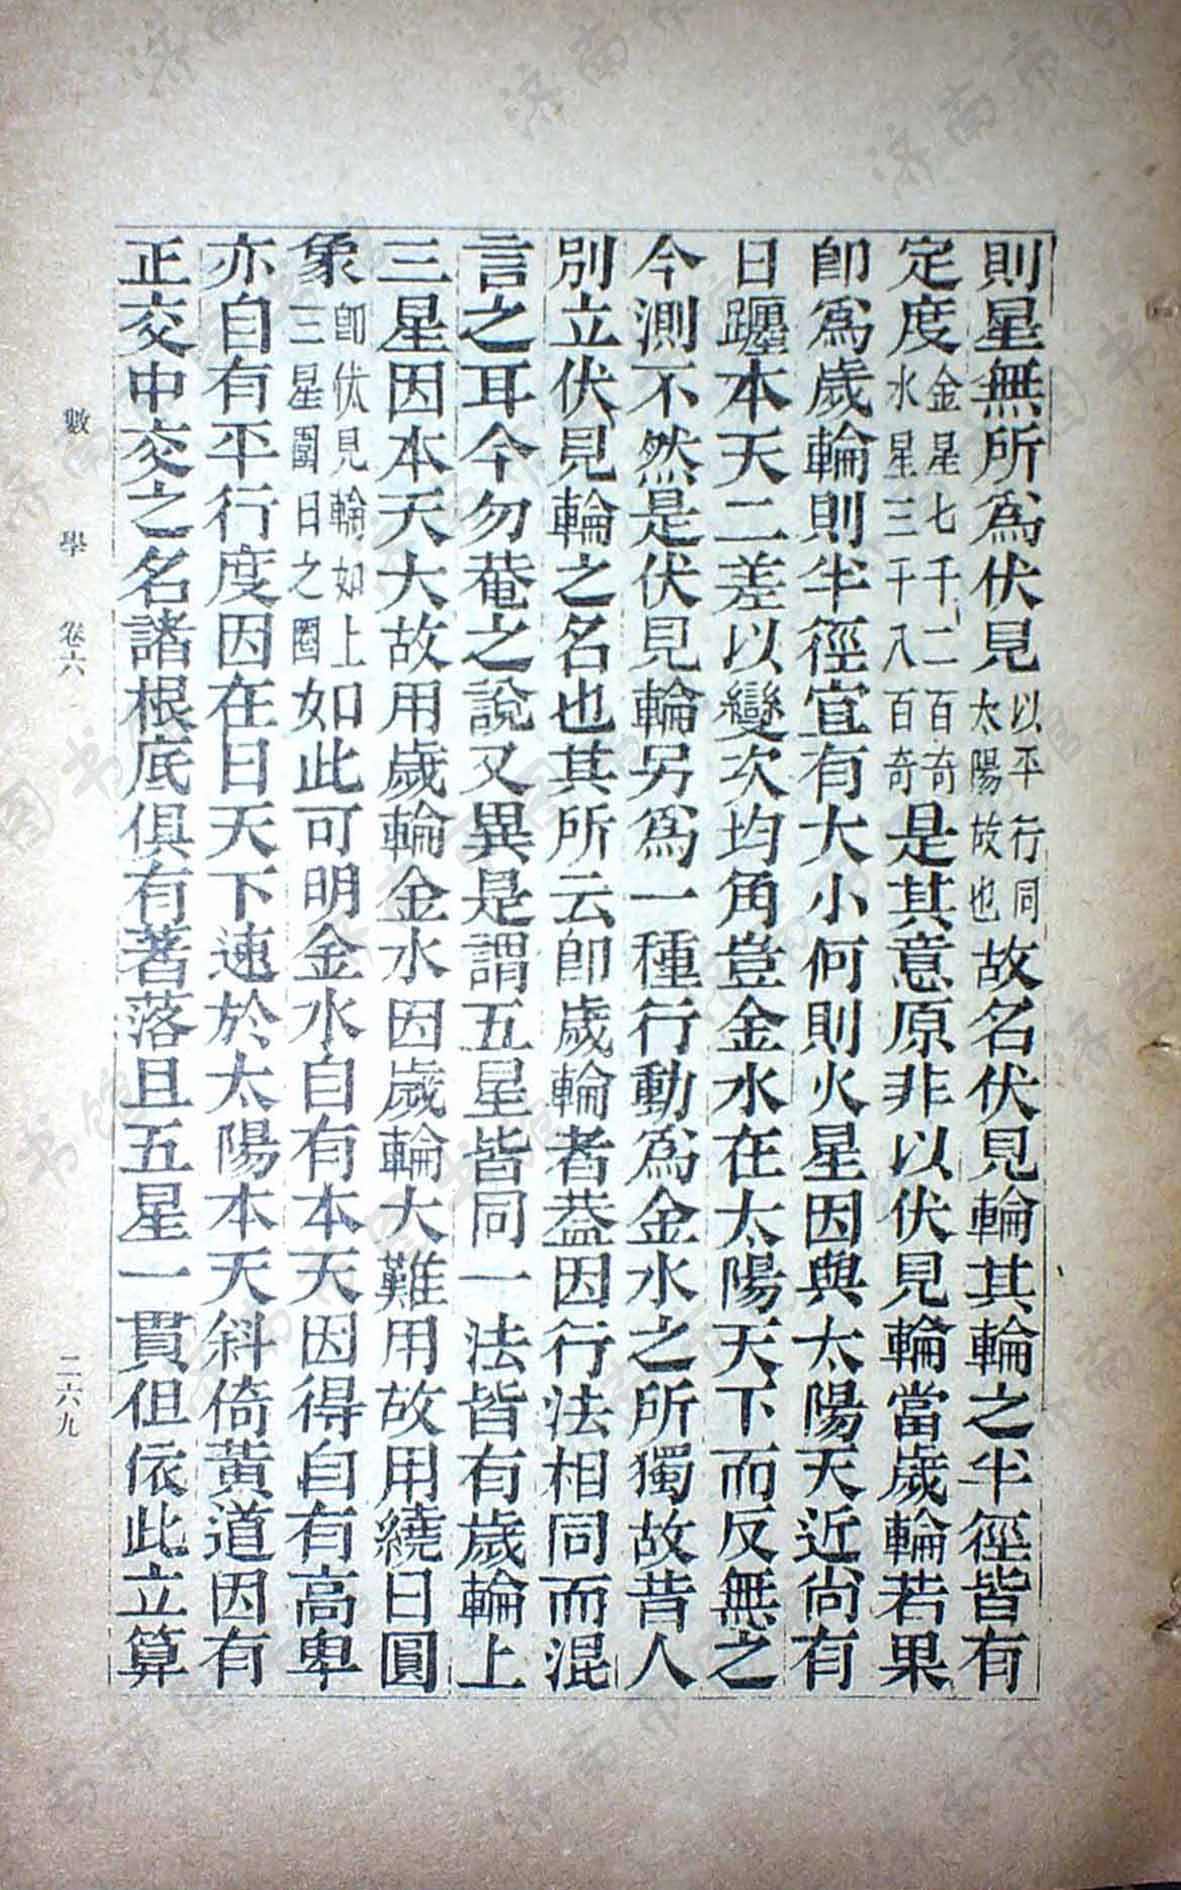 則星無所爲伏見以平行同太陽故也故名伏見輪其輪之半徑皆有
定度金星七千二百奇水星三千八百奇是其意原非以伏見輪當歲輪若果
卽爲歲輪則半徑宜有大小何則火星因與太陽天近尚有
日躔本天二差以變次均角豈金水在太陽天下而反無之
今測不然是伏見輪另爲一種行動爲金水之所獨故昔人
別立伏見輪之名也其所云卽歲輪者葢因行法相同而混
言之耳今勿菴之說又異是謂五星皆同一法皆有歲輪上
三星因本天大故用歲輪金水因歲輪大難用故用繞日圓
象卽伏見輪如上三星圍日之圈如此可明金水自有本天因得自有高卑
亦自有平行度因在日天下速於太陽本天斜倚黃道因有
正交中交之名諸根底俱有著落且五星一貫但依此立算
數學 卷六 二六九
济南市图书馆